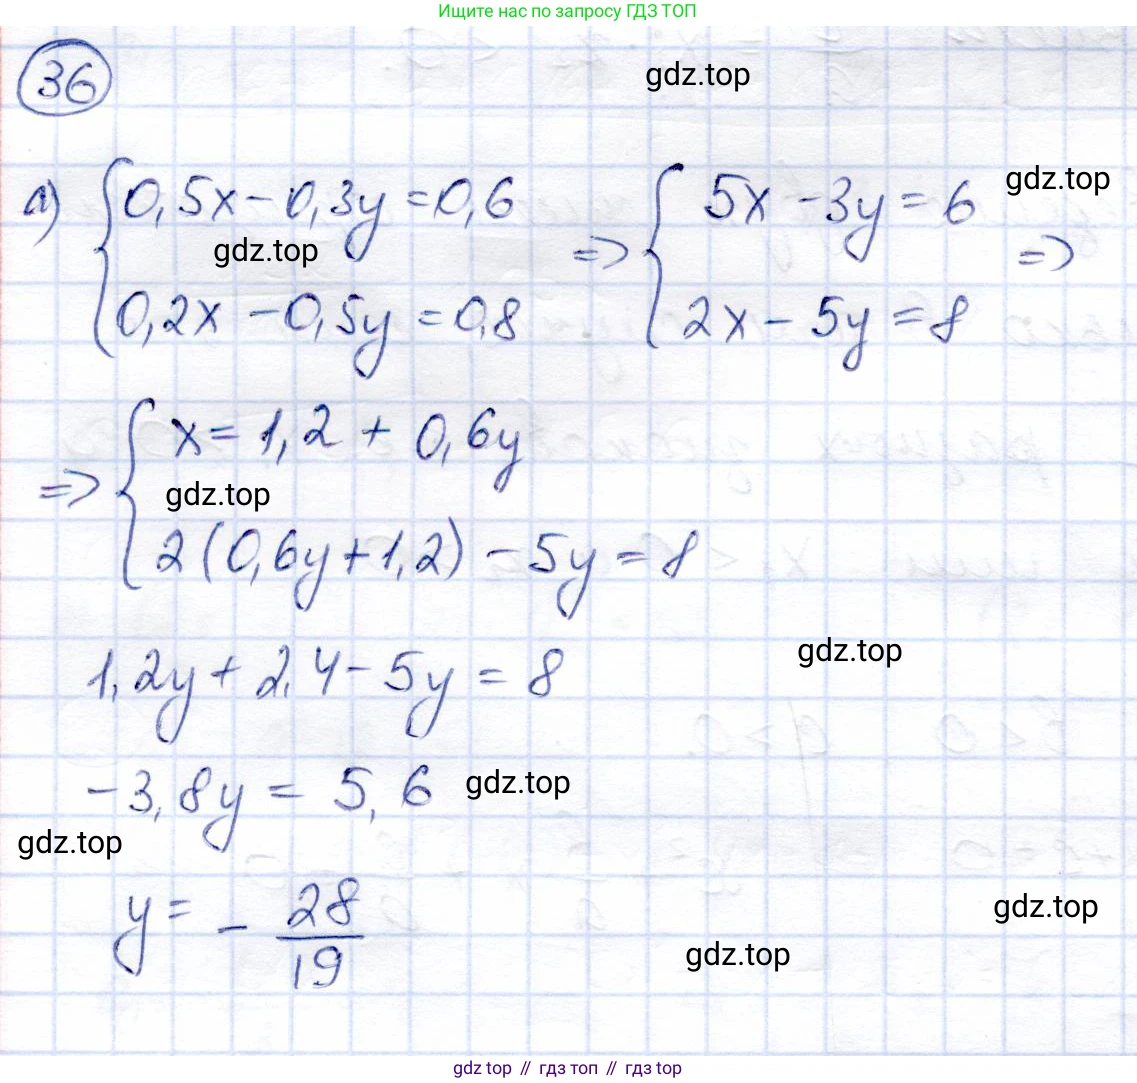 Ищите нас по запросу ГДЗ ТОП
36
gdz.top
а) { 0,5x - 0,3y = 0,6 => { 5x - 3y = 6 =>
gdz.top
gdz.top
0,2x - 0,5y = 0,8 2x - 5y = 8
=> { x = 1,2 + 0,6y
gdz.top
2(0,6y + 1,2) - 5y = 8
gdz.top
1,2y + 2,4 - 5y = 8
-3,8y = 5,6
gdz.top
gdz.top
y = - 28/19
gdz.top
gdz.top
gdz top // гдз топ // гдз top